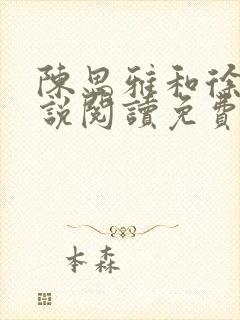 陳思雅和徐
說閱讀免費
本森